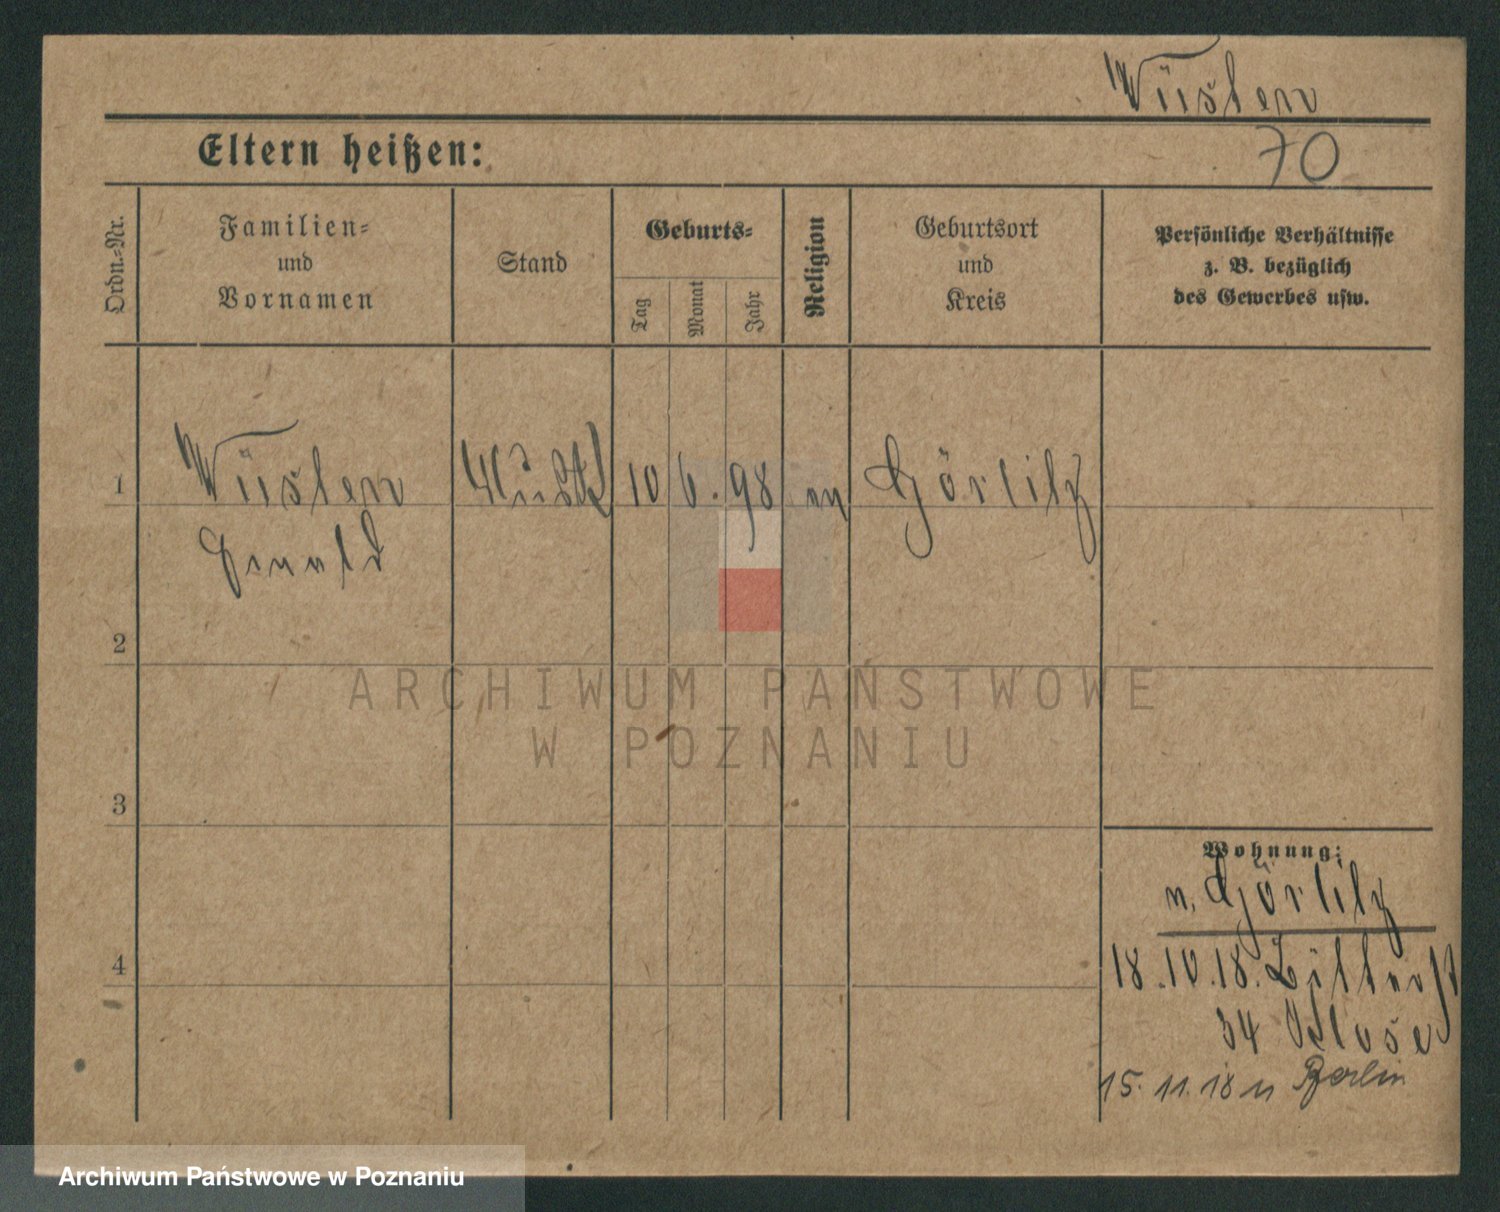 Wüsten
Eltern heißen:
70
Ordn.-Nr.
Familien-
und
Vornamen
Stand
Geburts-
Tag
Monat
Jahr
Religion
Geburtsort
und
Kreis
Persönliche Verhältnisse
z. B. bezüglich
des Gewerbes usw.
1
Wüsten
10
6.
98
Görlitz
2
3
4
Wohnung:
n. Görlitz
18.10.18.
34
15. 11. 18 n Berlin
ARCHIWUM PAŃSTWOWE
W POZNANIU
Archiwum Państwowe w Poznaniu